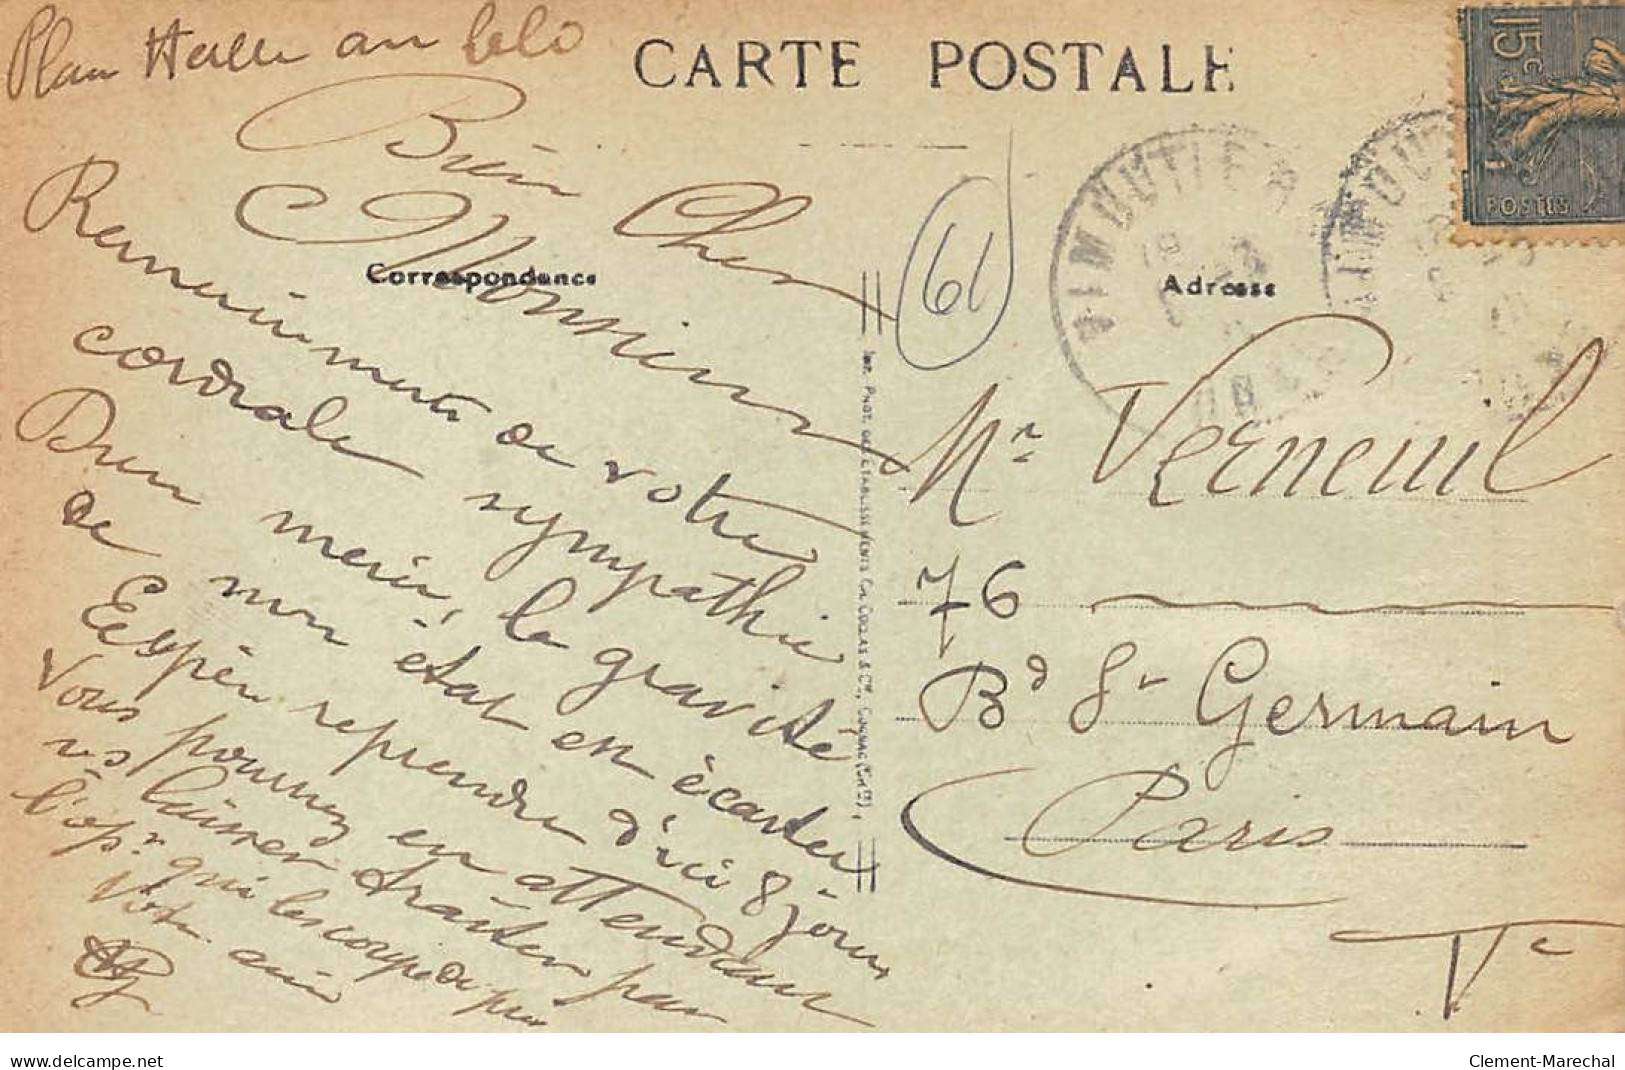 Plan Halle au blé
CARTE POSTALE
15c
POSTES
VIMOUTIERS
ORNE
61
Correspondance
Adresse
Bien Cher
Monsieur
Remerciments de votre
cordiale sympathie
Dieu merci, la gravité
de mon état en écarter
Espère reprendre d'ici 8 jours
Vous pouvez en attendant
vs laisser traiter par
l'opr qui les
Votre ami
Imp. Phot. des Établissements Ch. Collas & Cie, Cognac (Chte)
Mr Verneuil
76
Bd St Germain
Paris
Ve
www.delcampe.net
Clement-Marechal